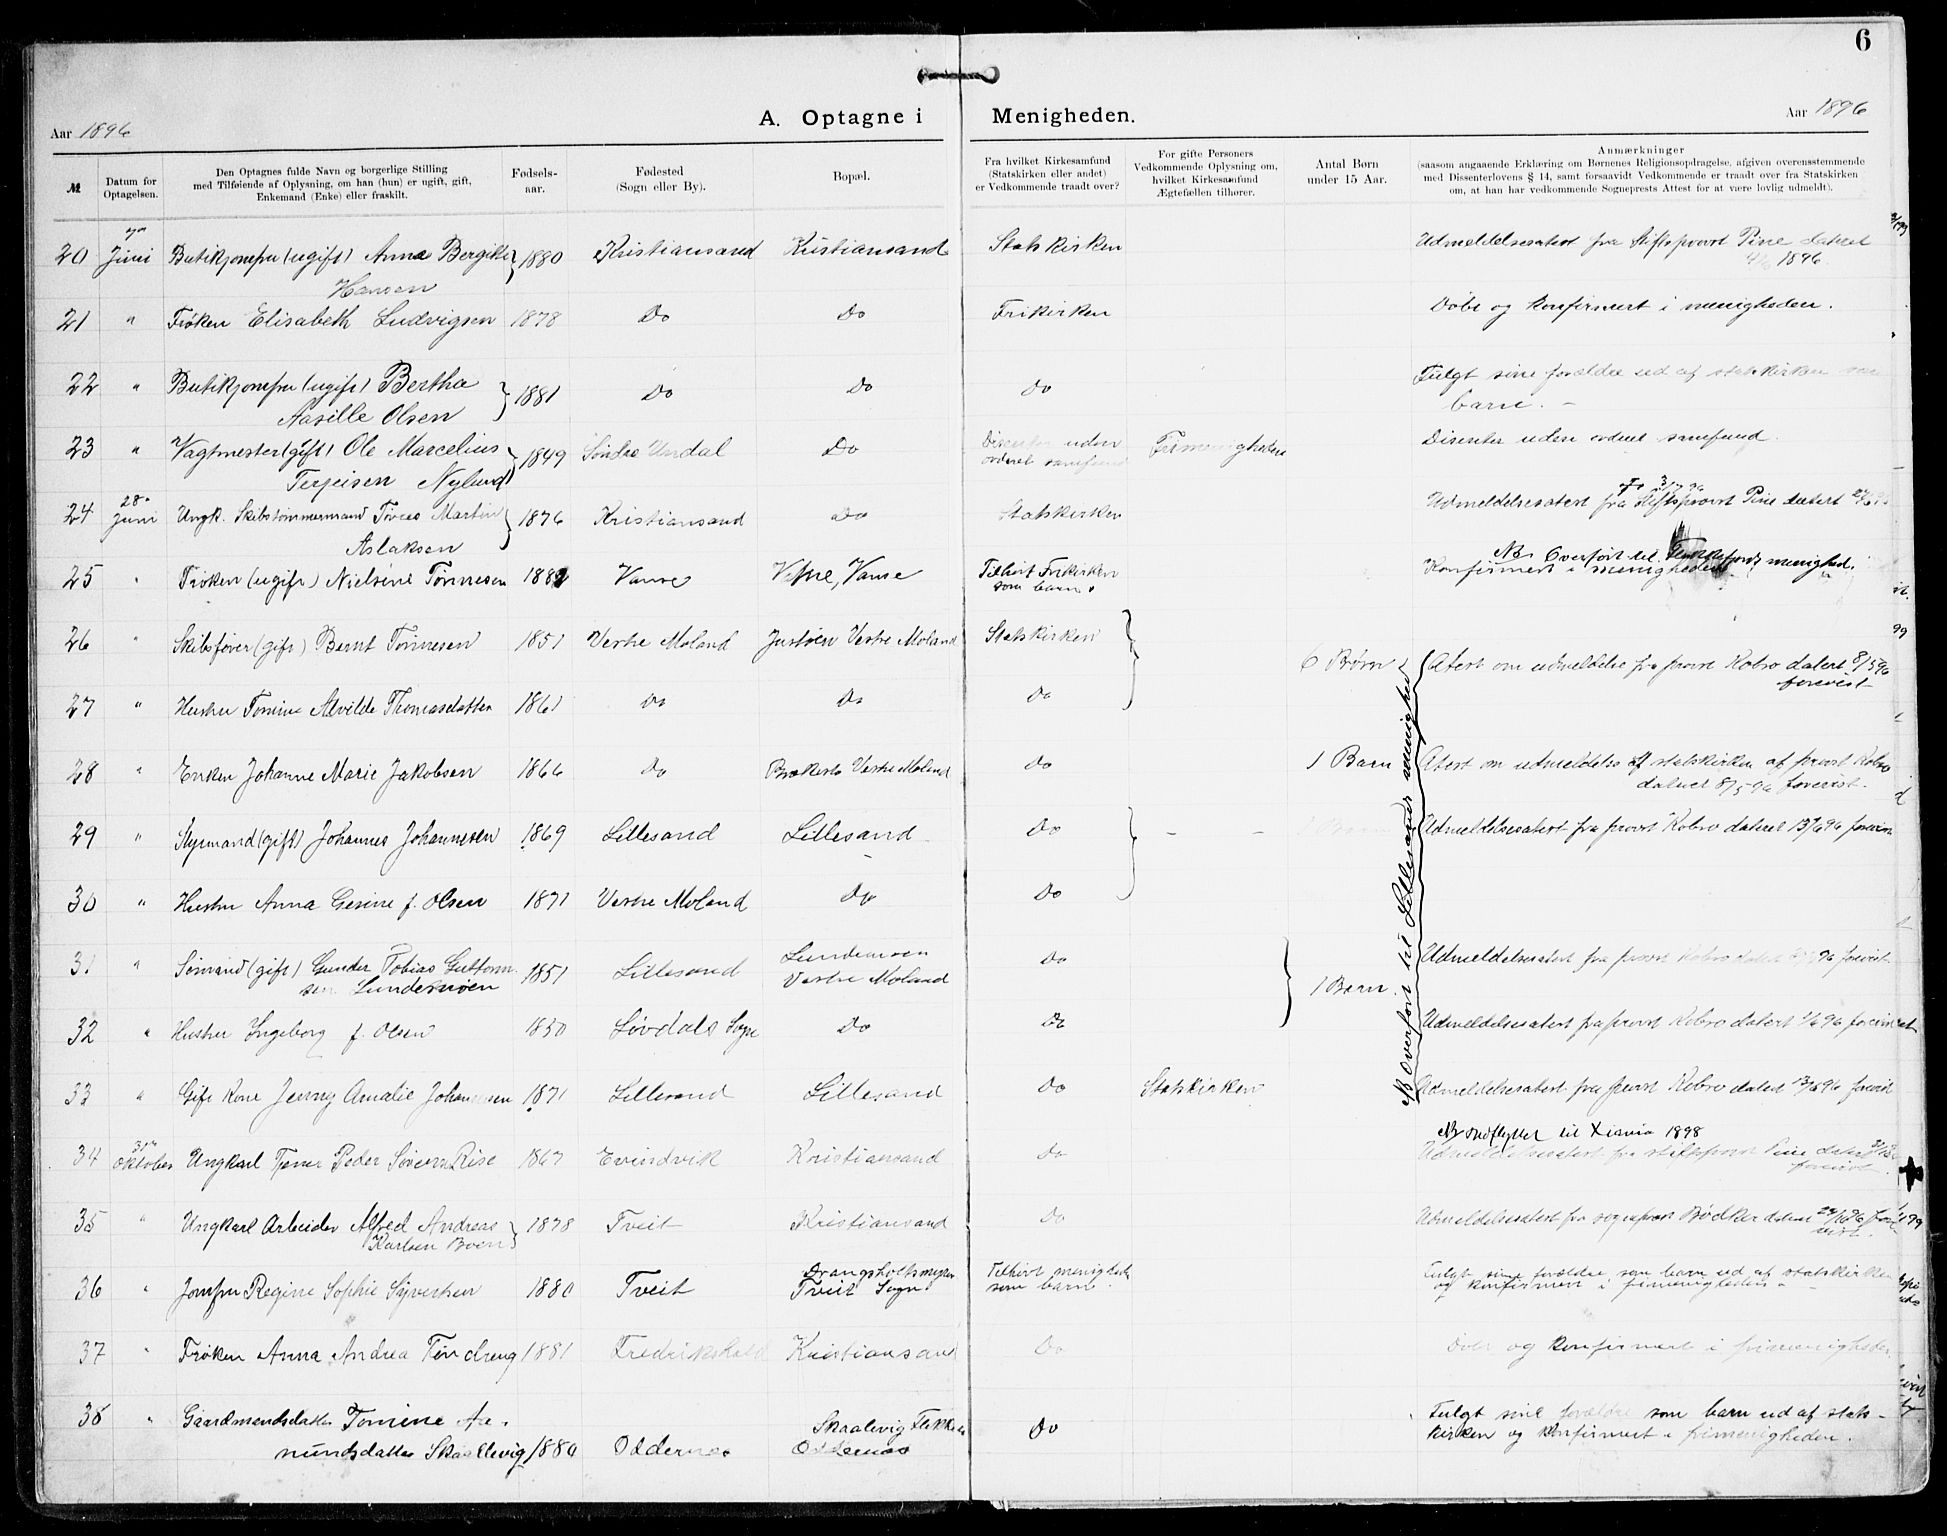 6
A. Optagne i Menigheden.
Aar 1896
Aar 1896
№
Datum for
Optagelsen.
Den Optagnes fulde Navn og borgerlige Stilling
med Tilføiende af Oplysning, om han (hun) er ugift, gift,
Enkemand (Enke) eller fraskilt.
Fødsels-
aar.
Fødested
(Sogn eller By).
Bopæl.
Fra hvilket Kirkesamfund
(Statskirken eller andet)
er Vedkommende traadt over?
For gifte Personers
Vedkommende Oplysning om,
hvilket Kirkesamfund
Ægtefællen tilhører.
Antal Børn
under 15 Aar.
Anmærkninger
(saasom angaaende Erklæring om Børnenes Religionsopdragelse, afgiven overensstemmende
med Dissenterlovens § 14, samt forsaavidt Vedkommende er traadt over fra Statskirken
om, at han har vedkommende Sogneprests Attest for at være lovlig udmeldt).
20 Juni Butikjomfru (ugift) Anna Bergitte 1880 Kristiansand Kristiansand Statskirken Udmeldelsesatest fra Stiftsprovst Pine dateret
Hansen 1896.
21 " Frøken Elisabeth Ludvigsen 1878 Do Do Frikirken Døbt og konfirmert i menigheden.
22 " Butikjomfru (ugift) Bertha 1881 Do Do Do Fulgt sine forældre ud af statskirken som
Aasille Olsen barn. -
23 " Vagtmester (gift) Ole Marcelius 1849 Søndre Undal Do Disenter uden Frimenigheden Disenter uden ordnet samfund.
Terjeisen Nylund ordnet samfund
24 28 Juni Ungk. Skibstømmermand Tøres Martin 1876 Kristiansand Do Statskirken Udmeldelsesatest fra Stiftsprovst Pine datert
Aslaksen
25 " Frøken (ugift) Nielsine Tønnesen 1882 Vanse Vanse Tilhørt Frikirken NB Overført til Flekkefjords menighed.
som barn. Konfirmert i menigheden
26 " Skibsfører (gift) Bernt Tønnesen 1851 Vestre Moland Justøen Vestre Moland Statskirken
6 Børn Atest om udmeldelse fra provst Kobro datert 8/5 96
forevist
27 " Hustru Tomine Alvilde Thomasdatter 1861 Do Do Do
28 " Enken Johanne Marie Jakobsen 1866 Do Brækestø Vestre Moland Do 1 Barn Atest om udmeldelse af statskirken af provst Kobro
dateret 8/5 96 forevist.
29 " Styrmand (gift) Johannes Johannesen 1869 Lillesand Lillesand Do - - Udmeldelsesatest fra provst Kobro dateret 13/6 96 forevist
NB Overført til Lillesands menighed
30 " Hustru Anna Gesine f. Olsen 1871 Vestre Moland Do Do
31 " Sømand (gift) Gunder Tobias Guttorm- 1851 Lillesand Lundemoen Do Udmeldelsesatest fra provst Kobro datert 96 forevist
sen Lundemoen Vestre Moland 1 Barn.
32 " Hustru Ingeborg f. Olsen 1850 Løvdals Sogn Do Do Udmeldelsesatest fra provst Kobro datert 96 forevist
33 " Gift Kone Jenny Amalie Johannesen 1871 Lillesand Lillesand Do Statskirken Udmeldelsesatest fra provst Kobro datert 13/6 96 forevist
NB Udflyttet til Xiania 1898
34 oktober Ungkarl Tjener Peder Søvern Rise 1867 Evindvik Kristiansand Do Udmeldelsesatest fra stiftsprovst Pine datert
forevist.
35 " Ungkarl Arbeider Alfred Andreas 1878 Tveit Kristiansand Do Udmeldelsesatest fra sogneprest Bødker datert 96 fore-
Karlsen Boen vist.
36 " Jomfru Regine Sophie Syvertsen 1880 Tveit Drangsholtsmyren Tilhørt menigheden Fulgt sine forældre som barn ud af statskirken
Tveit Sogn som barn. og konfirmert i frimenigheden
37 " Frøken Anna Andrea Tendreng 1881 Fredrikshald Kristiansand Do Døbt og konfirmert i frimenigheden.
38 " Gaardmandsdatter Tomine Aa- Skaalevig Flekkerø Do Fulgt sine forældre som barn ud af stats-
nundsdatter Skaallevig 1880 Oddernes Oddernes kirken og konfirmert i frimenigheden.